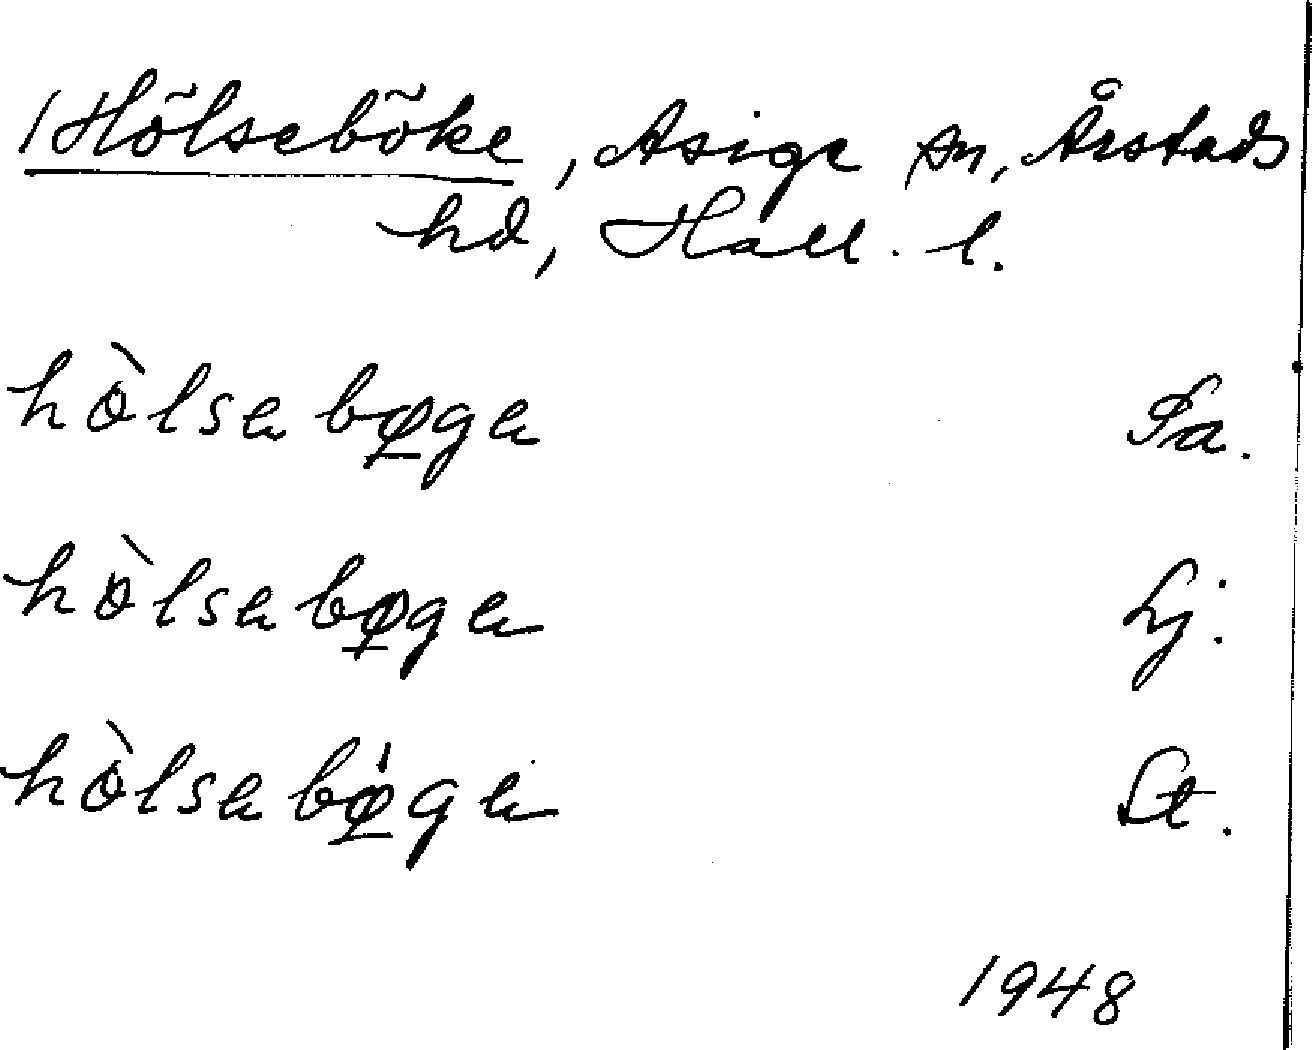 Hölseböke, Asige sn, Årstads
hd, Hall. l.
hòlsa bø̲ga Sa.
hòlsa bø̲ga Lj.
hòlsa bǿ̲ga St.
1948